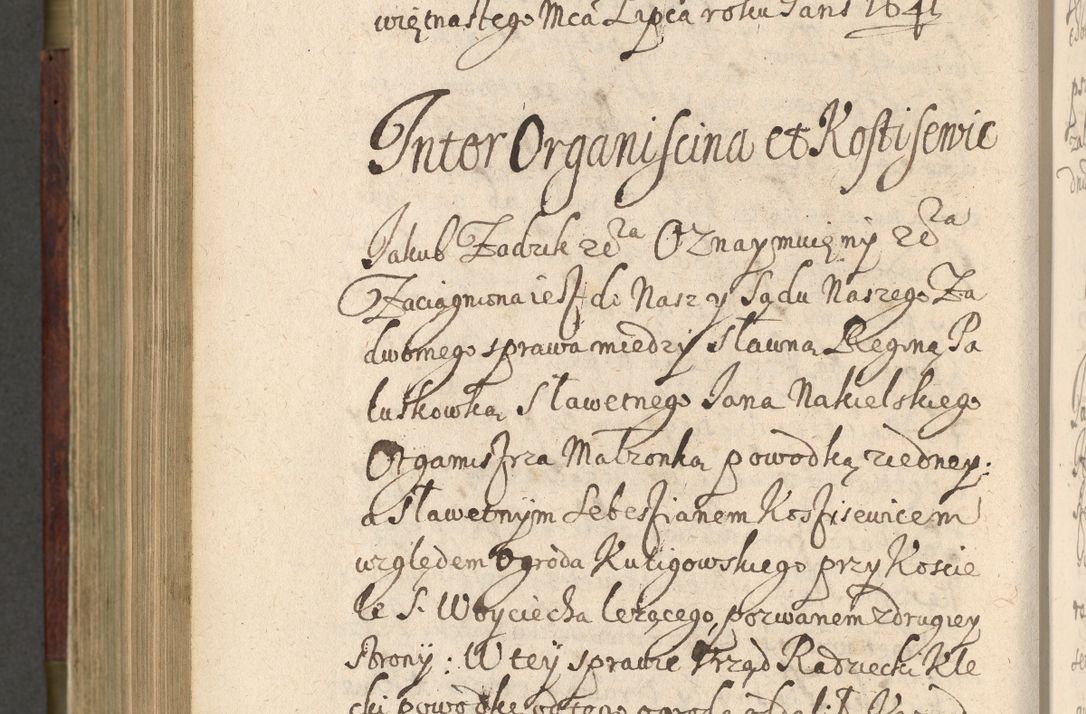 więtnastego Mca Lipca roku Pans 1641
Inter Organiscina et Kostisewic
Jakub Zadzik &c̃ra Oznaymuięmÿ &c̃ra
Zaciągniona iest do Nas z y Sądu Naszego Za
dwornego sprawa miedzÿ Sławną Reginą Pa
luskowską Sławetnego Jana Nakielskiego
Organistrza Małzonką powodką z iedney:
a Sławetnÿm Sebestianem Kostisewicem
względem Ogroda Kuligowskiego przy Koscie
le S. Woyciecha lezącego, pozwanem z drugiey
stronÿ: W teÿ sprawie Vrząd Radziecki Kle
cki powodkę od tego ogroda oddalił